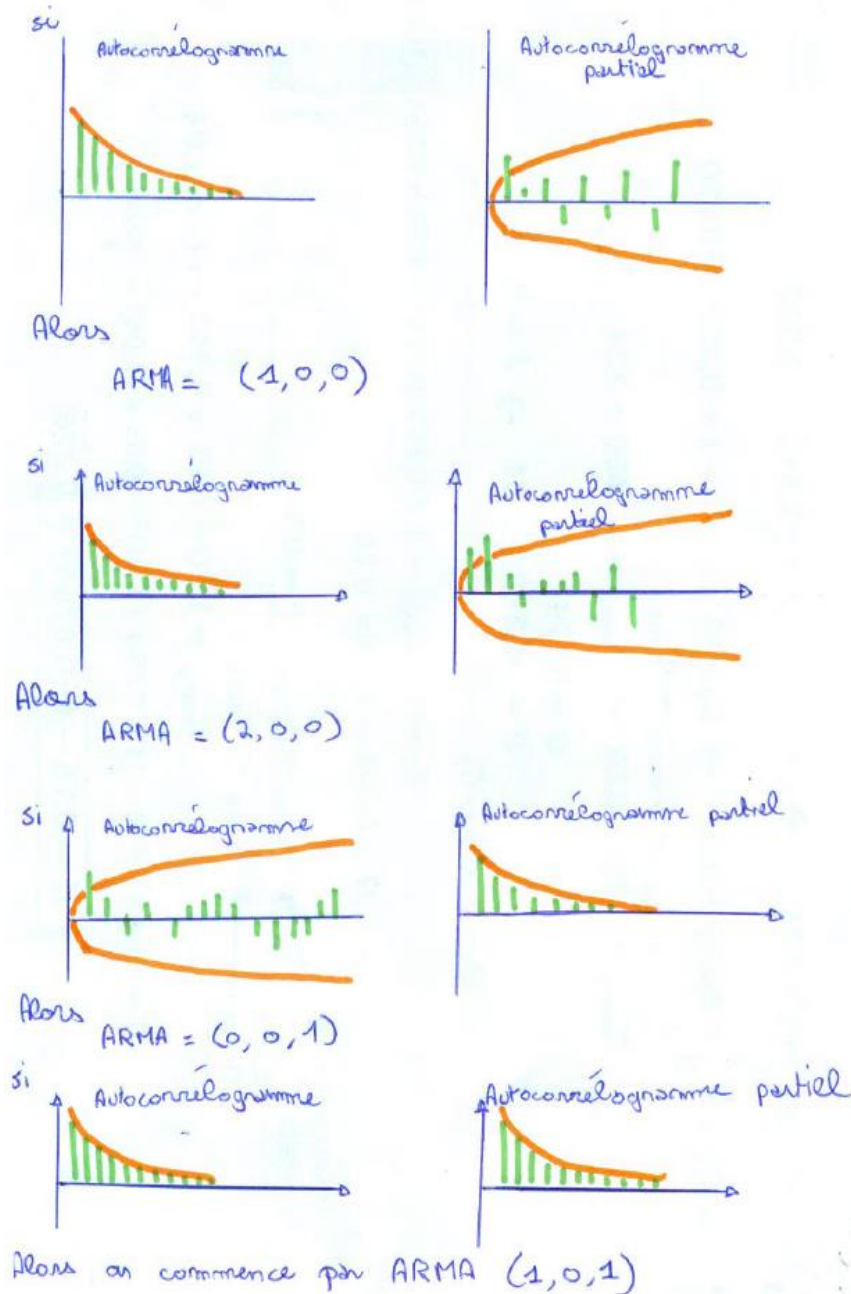 si
Autocorrélogramme
Autocorrélogramme
partiel
Alors
ARMA = (1,0,0)
si
Autocorrélogramme
Autocorrélogramme
partiel
Alors
ARMA = (2,0,0)
si
Autocorrélogramme
Autocorrélogramme partiel
Alors
ARMA = (0,0,1)
si
Autocorrélogramme
Autocorrélogramme partiel
Alors on commence par ARMA (1,0,1)